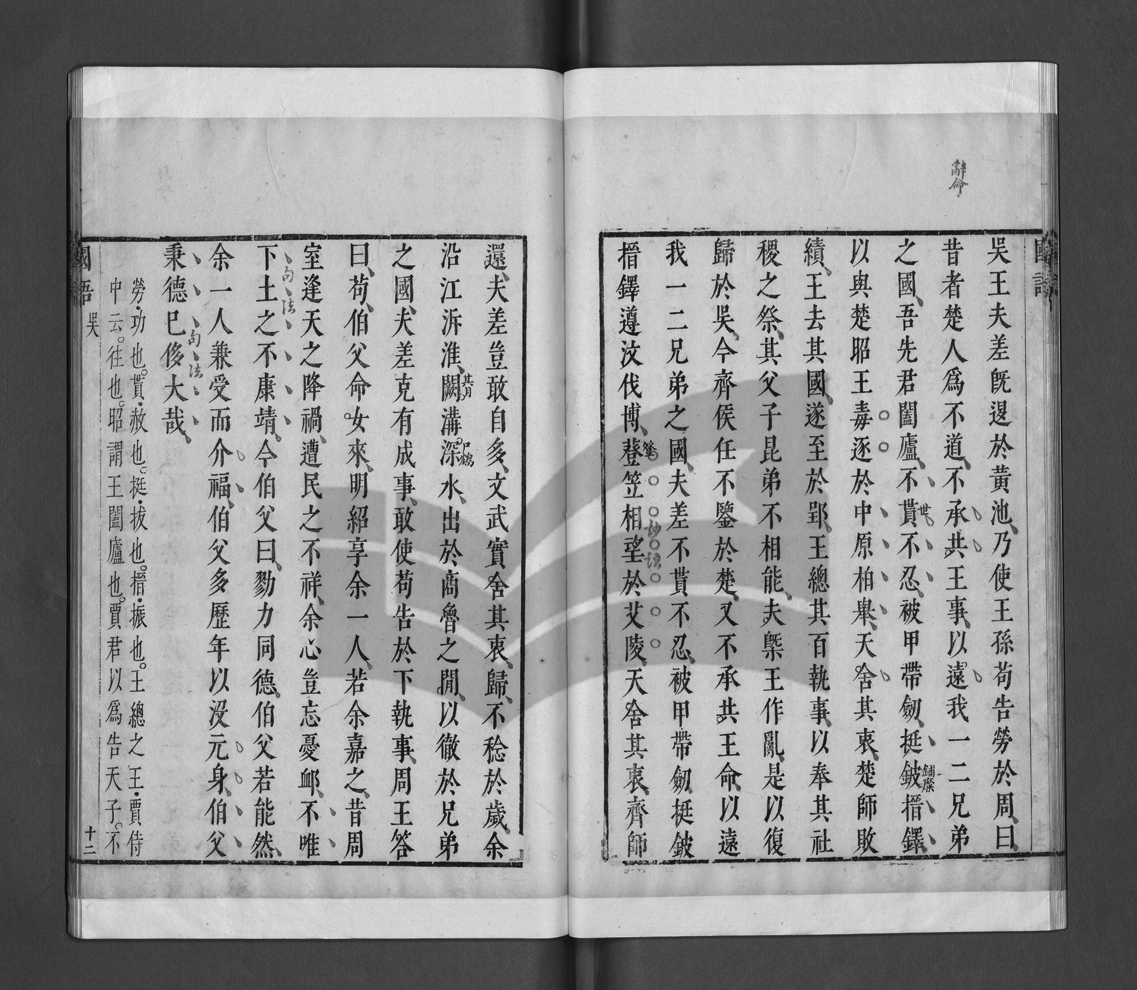 國語
辭命
吳王夫差旣退於黃池乃使王孫苟告勞於周曰
昔者楚人爲不道不承共王事以遠我一二兄弟
之國吾先君闔廬不貰不忍被甲帶劒挺鈹搢鐸
以與楚昭王毒逐於中原柏舉天舍其衷楚師敗
績王去其國遂至於郢王總其百執事以奉其社
稷之祭其父子昆弟不相能夫槩王作亂是以復
歸於吳今齊侯任不鑒於楚又不承共王命以遠
我一二兄弟之國夫差不貰不忍被甲帶劒挺鈹
搢鐸遵汶伐博簦笠相望於艾陵天舍其衷齊師
還夫差豈敢自多文武實舍其衷歸不稔於歲余
沿江泝淮闕溝深水出於商魯之閒以徹於兄弟
之國夫差克有成事敢使苟告於下執事周王答
曰苟伯父命女來明紹享余一人若余嘉之昔周
室逢天之降禍遭民之不祥余心豈忘憂卹不唯
下土之不康靖今伯父曰勠力同德伯父若能然
句法
余一人兼受而介福伯父多歷年以沒元身伯父
秉德已侈大哉
句法
勞功也貰赦也挺拔也搢振也王總之王賈侍
中云往也昭謂王闔廬也賈君以爲告天子不
國語
吳
十二